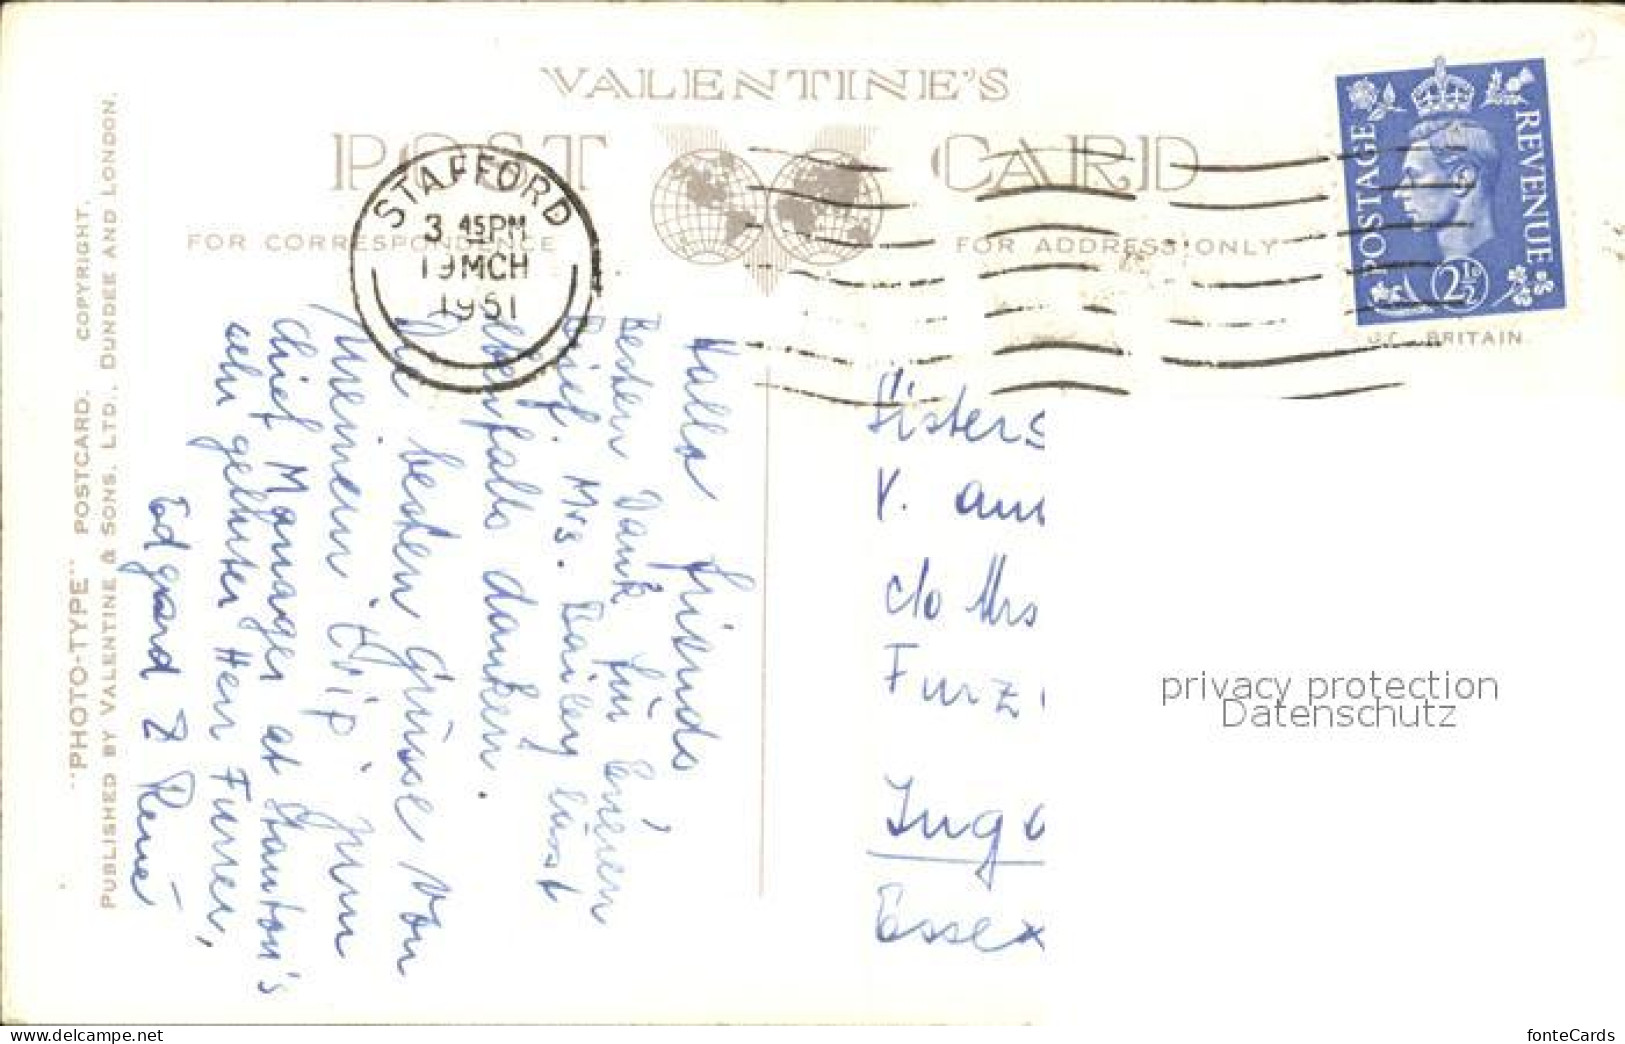 VALENTINE'S
POST CARD
FOR CORRESPONDENCE
FOR ADDRESS ONLY
STAFFORD
3 45PM
19 MCH
1951
POSTAGE
REVENUE
2½D
BRITAIN
"PHOTO-TYPE" POSTCARD. COPYRIGHT.
PUBLISHED BY VALENTINE & SONS, LTD., DUNDEE AND LONDON.
Hallo Friends
Besten Dank für Euren
Brief. Mrs. Bailey lässt
ebenfalls danken.
Die besten Grüsse von
meinem Trip zum
chief Manager at Stanton's
sehr geehrter Herr Furrer,
Edgard & René
Sisters
V. and
c/o Mrs
Furz
Ing
Essex
privacy protection
Datenschutz
fonteCards